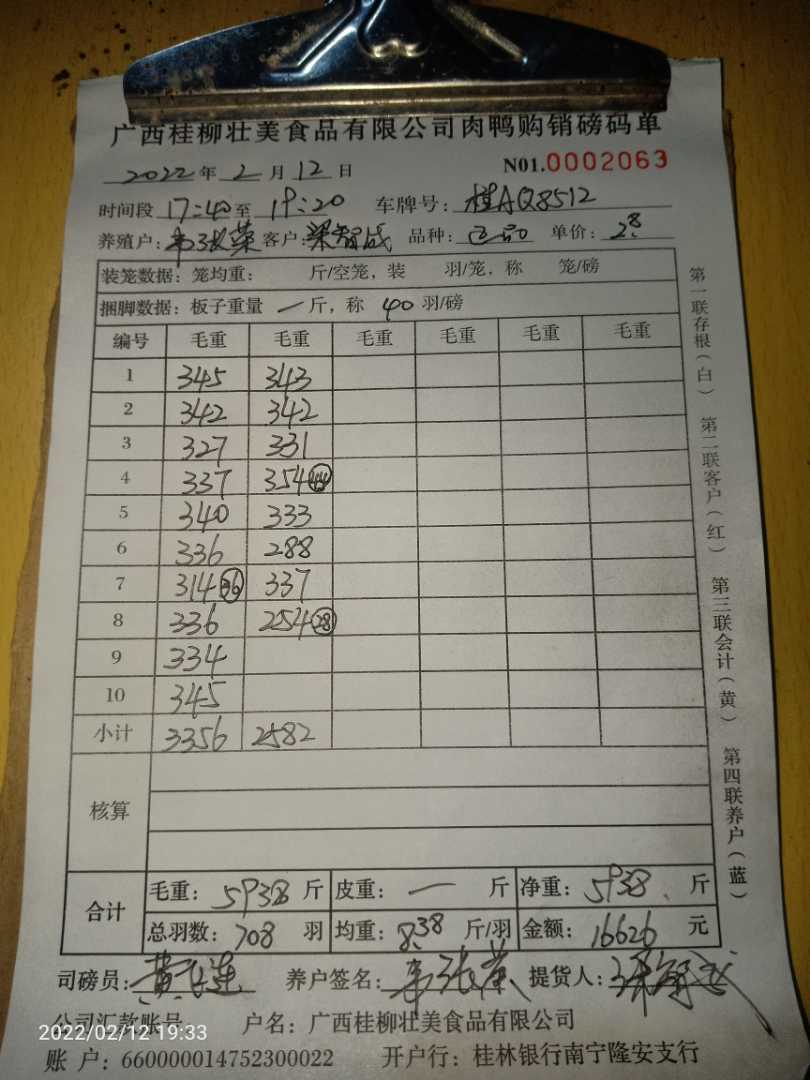 广西桂柳壮美食品有限公司肉鸭购销磅码单
2022年2月12日 N01.0002063
时间段17:40至19:20 车牌号：桂AQ8512
养殖户：韦张荣 客户：梁智成 品种：正品 单价：2.8
装笼数据：笼均重： 斤/空笼，装 羽/笼，称 笼/磅
捆脚数据：板子重量 一 斤，称 40 羽/磅
编号 毛重 毛重 毛重 毛重 毛重 毛重
1 345 343
2 342 342
3 327 331
4 337 354 44
5 340 333
6 336 288
7 314 36 337
8 336 254 28
9 334
10 345
小计 3356 2582
核算
合计 毛重：5938斤 皮重：一 斤 净重：5938.斤
总羽数：708 羽 均重：8.38 斤/羽 金额：16626 元
司磅员： 养户签名：韦张荣 提货人：梁智成
公司汇款账号 户名：广西桂柳壮美食品有限公司
2022/02/12 19:33
账 户：660000014752300022 开户行：桂林银行南宁隆安支行
第一联存根（白） 第二联客户（红） 第三联会计（黄） 第四联养户（蓝）